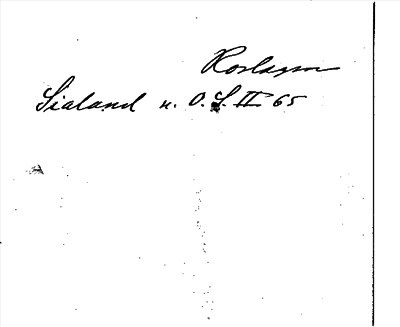 Roslagen
Sialand u. O. S. II 65